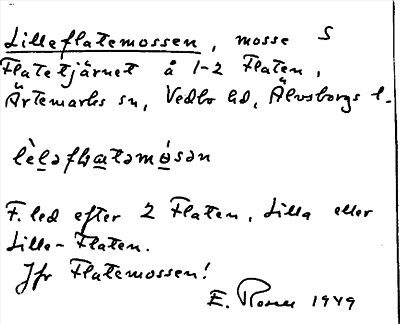 Lilleflatemossen, mosse S
Flatetjärnet å 1-2 Flaten,
Ärtemarks sn, Vedbo hd, Älvsborgs l.
F. led efter 2 Flaten, Lilla eller
Lille-Flaten.
Jfr Flatemossen!
E. 1949